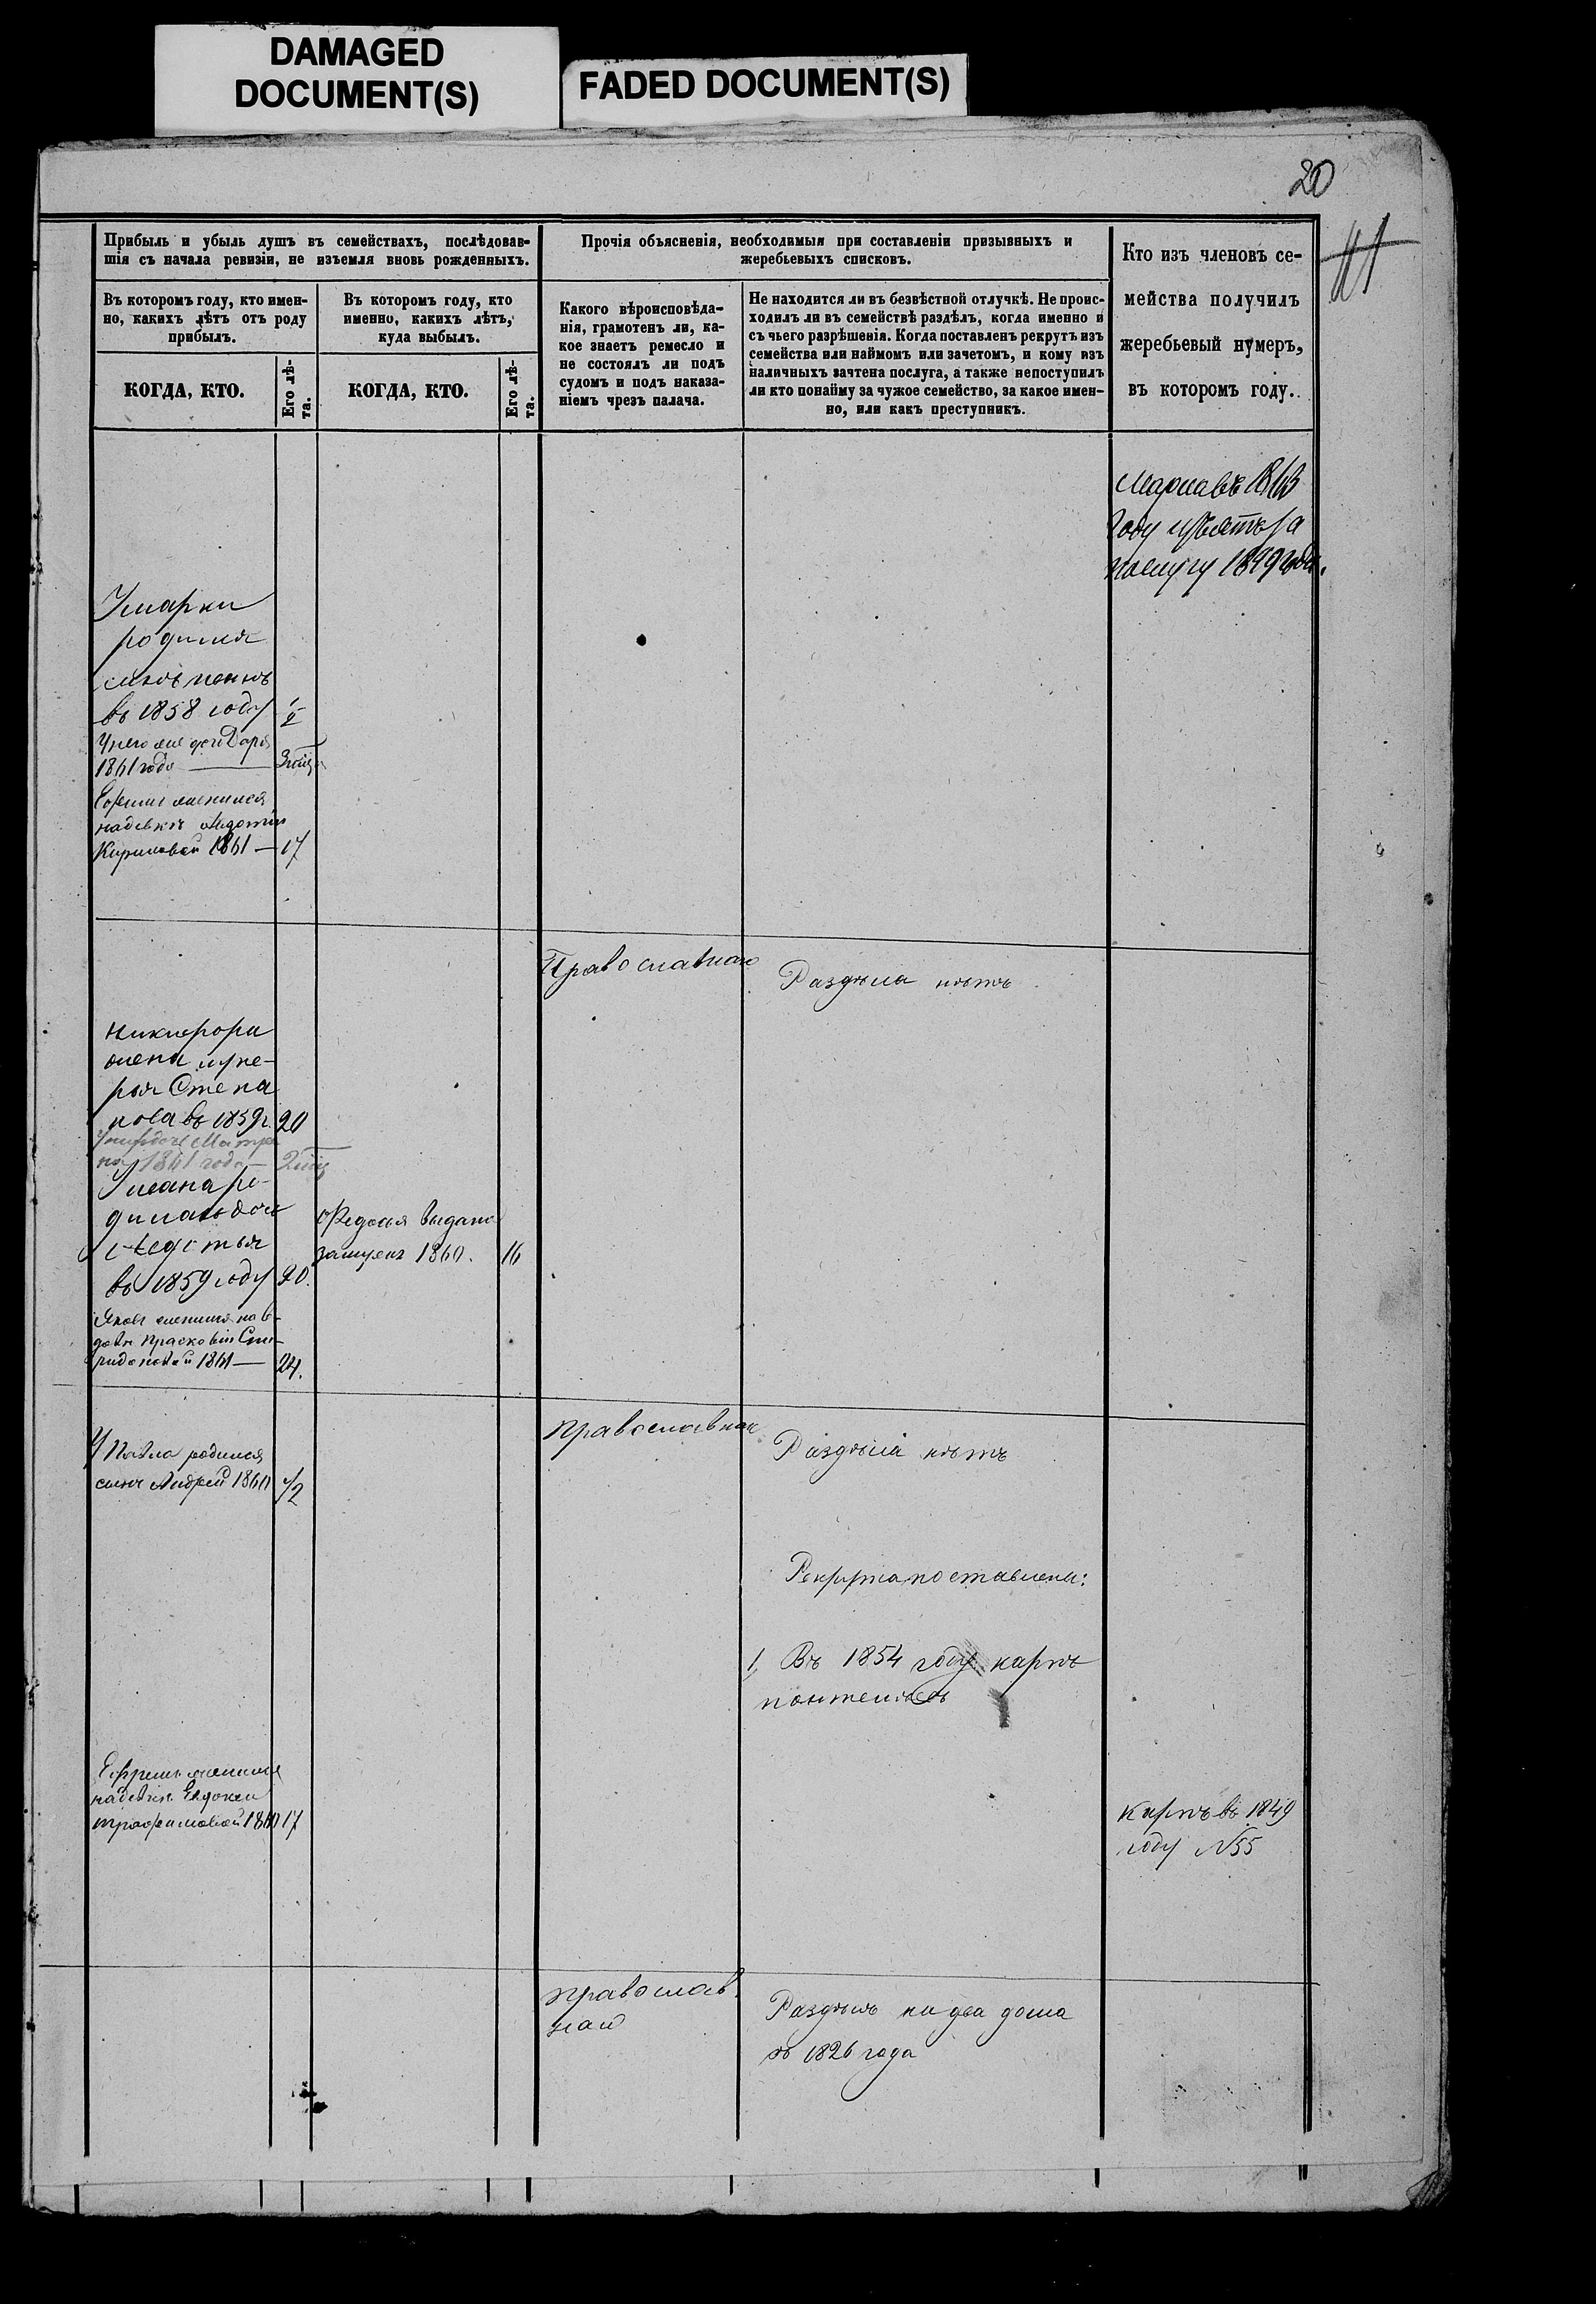 DAMAGED
DOCUMENT(S)
FADED DOCUMENT(S)
20
41
Прибыль и убыль душъ въ семействахъ, послѣдовав-
шія съ начала ревизіи, не изъемля вновь рожденныхъ.
Прочія объясненія, необходимыя при составленіи призывныхъ и
жеребьевыхъ списковъ.
Кто изъ членовъ се-
мейства получилъ
жеребьевый нумеръ,
въ которомъ году.
Въ которомъ году, кто имен-
но, какихъ лѣтъ отъ роду
прибылъ.
Въ которомъ году, кто
именно, какихъ лѣтъ,
куда выбылъ.
Какого вѣроисповѣда-
нія, грамотенъ ли, ка-
кое знаетъ ремесло и
не состоялъ ли подъ
судомъ и подъ наказа-
ніемъ чрезъ палача.
Не находится ли въ безвѣстной отлучкѣ. Не проис-
ходилъ ли въ семействѣ раздѣлъ, когда именно и
съ чьего разрѣшенія. Когда поставленъ рекрутъ изъ
семейства или наймомъ или зачетомъ, и кому изъ
наличныхъ зачтена послуга, а также непоступилъ
ли кто понайму за чужое семейство, за какое имен-
но, или какъ преступникъ.
КОГДА, КТО.
Его лѣ-
та.
КОГДА, КТО.
Его лѣ-
та.
въ 1863
году изъятъ за
послугу 1849 года.
У марки
родился
сынъ
въ 1858 году 1/2
У него же дочь Дарья
1861 года — 3
Ефимъ женился
на девкѣ
Кириловой 1861 — 17
Православнаго
Раздѣла нѣтъ
Никифора
жена
Степа
нова въ 1859 г. 20
дочь Матре
на 1861 года — 2
У Ивана ро-
дилась дочь
въ 1859 году 20.
Федосья выдана
замужъ 1860. 16
Яковъ женился на в-
довѣ Прасковіи Спи-
ридоновой 1861 — 24.
У Павла родился
сынъ Андрей 1860 1/2
Православнаго
Раздѣла нѣтъ
Рекрута поставлены:
1, Въ 1854 году карпъ
Ефремъ женился
на девкѣ Евдокеи
трафимовой 1860 17
Карпъ въ 1849
году №55
православ
наго
Раздѣлъ на два дома
съ 1826 года